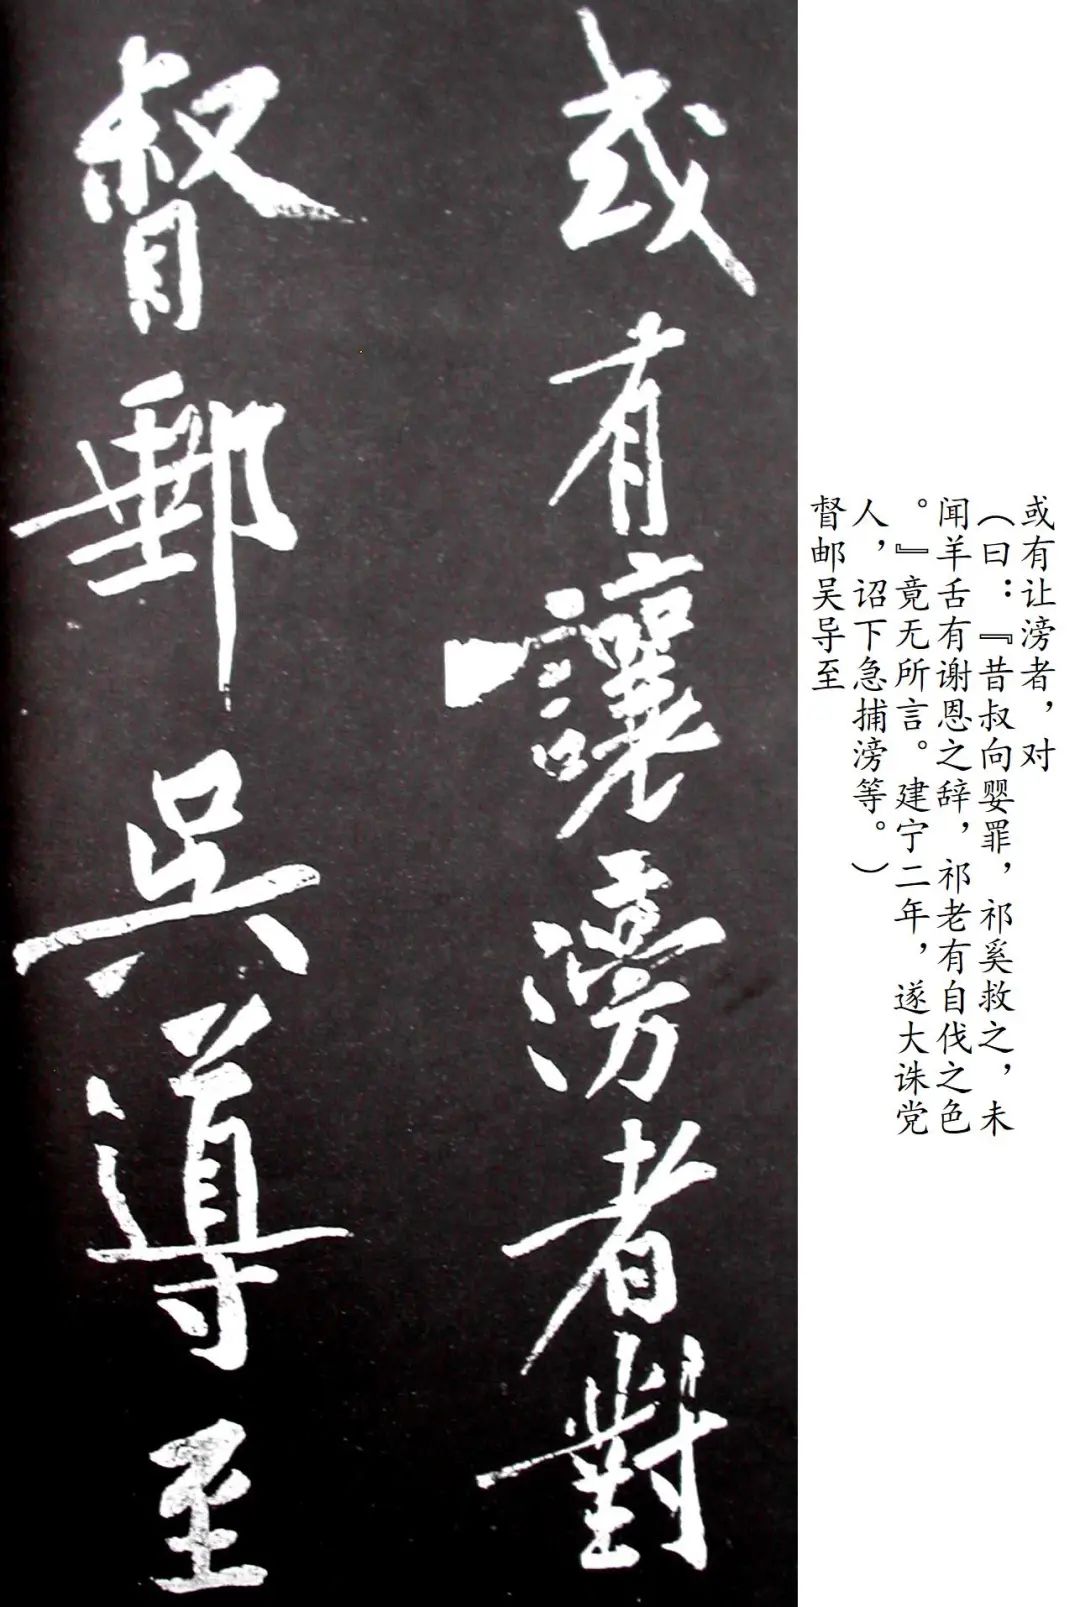 或有讓滂者對
督郵吳導至
或有让滂者，对
（曰：『昔叔向婴罪，祁奚救之，未
闻羊舌有谢恩之辞，祁老有自伐之色
。』竟无所言。建宁二年，遂大诛党
人，诏下急捕滂等。）
督邮吴导至